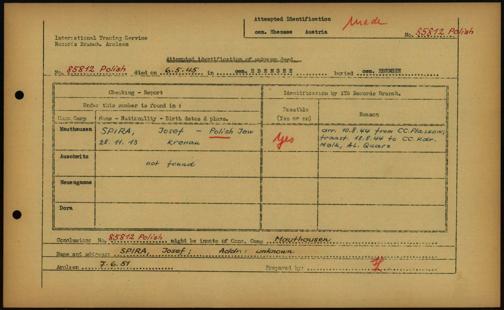 Attempted Identification
Made
cem. Ebensee Austria
International Tracing Service
Records Branch, Arolsen
No. 85812 Polish
Attempted identification of unknown dead.
No. 85812 Polish died on 6.5.45 in cem. EBENSEE buried cem. EBENSEE
Checking - Report
Identification by ITS Records Branch.
Under this number is found in :
Possible
(Yes or no)
Reason
Conc. Camp
Name - Nationality - Birth dates & place.
Mauthausen
SPIRA, Josef - Polish Jew
28.11.13 Krakau
Yes
arr. 10.8.44 from CC. Plaszow;
transf. 18.8.44 to CC. Kdo.
Melk, AL. Quarz
Auschwitz
not found
Neuengamme
Dora
Conclusions No. 85812 Polish might be inmate of Conc. Camp Mauthausen
Name and address: SPIRA, Josef; Addr: unknown
Arolsen 7.6.51 Prepared by: